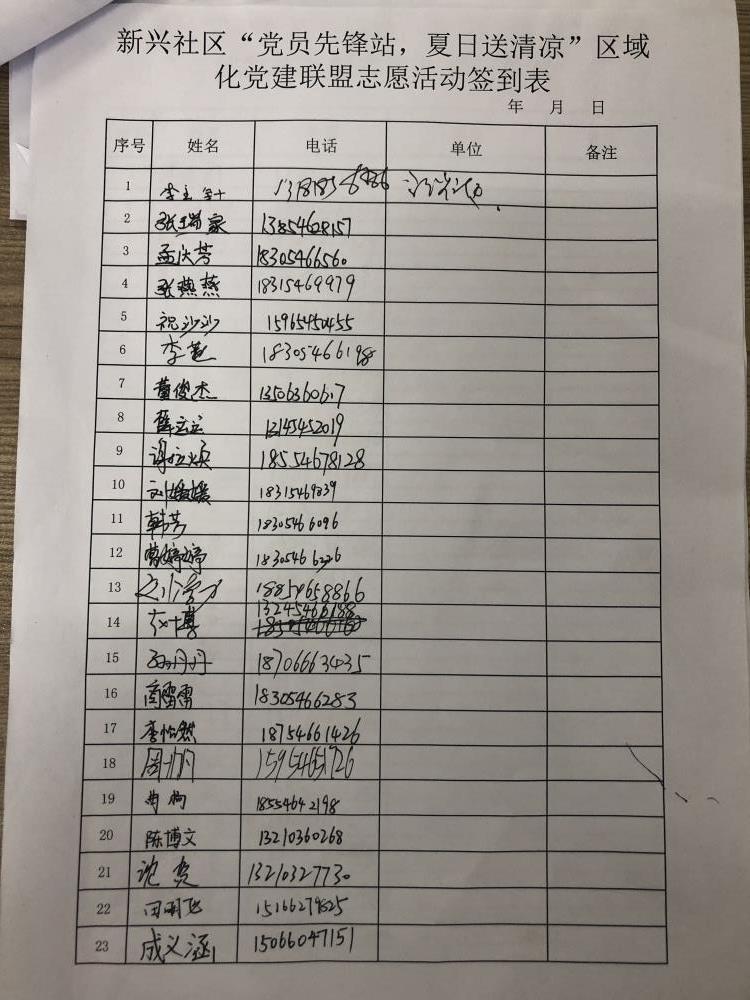 新兴社区“党员先锋站，夏日送清凉”区域
化党建联盟志愿活动签到表
年 月 日
序号 姓名 电话 单位 备注
1
2 张瑞家 13854628157
3 孟庆芳 18305466560
4 张燕燕 18315469979
5 祝沙沙 15965450455
6 李 18305466198
7 董俊杰
8 薛云云
9 18554678128
10 刘媛媛 18315469839
11 韩芳 18305466096
12 曹婷婷 18305466226
13
14 赵博 13245466188
15 孙丹丹 18706663435
16 商雷雷 18305466283
17 李怡然 18754661426
18 周 15954651726
19 18554642198
20 陈博文 13210360268
21 13210327730
22 田明飞 15166279825
23 成义涵 15066047151